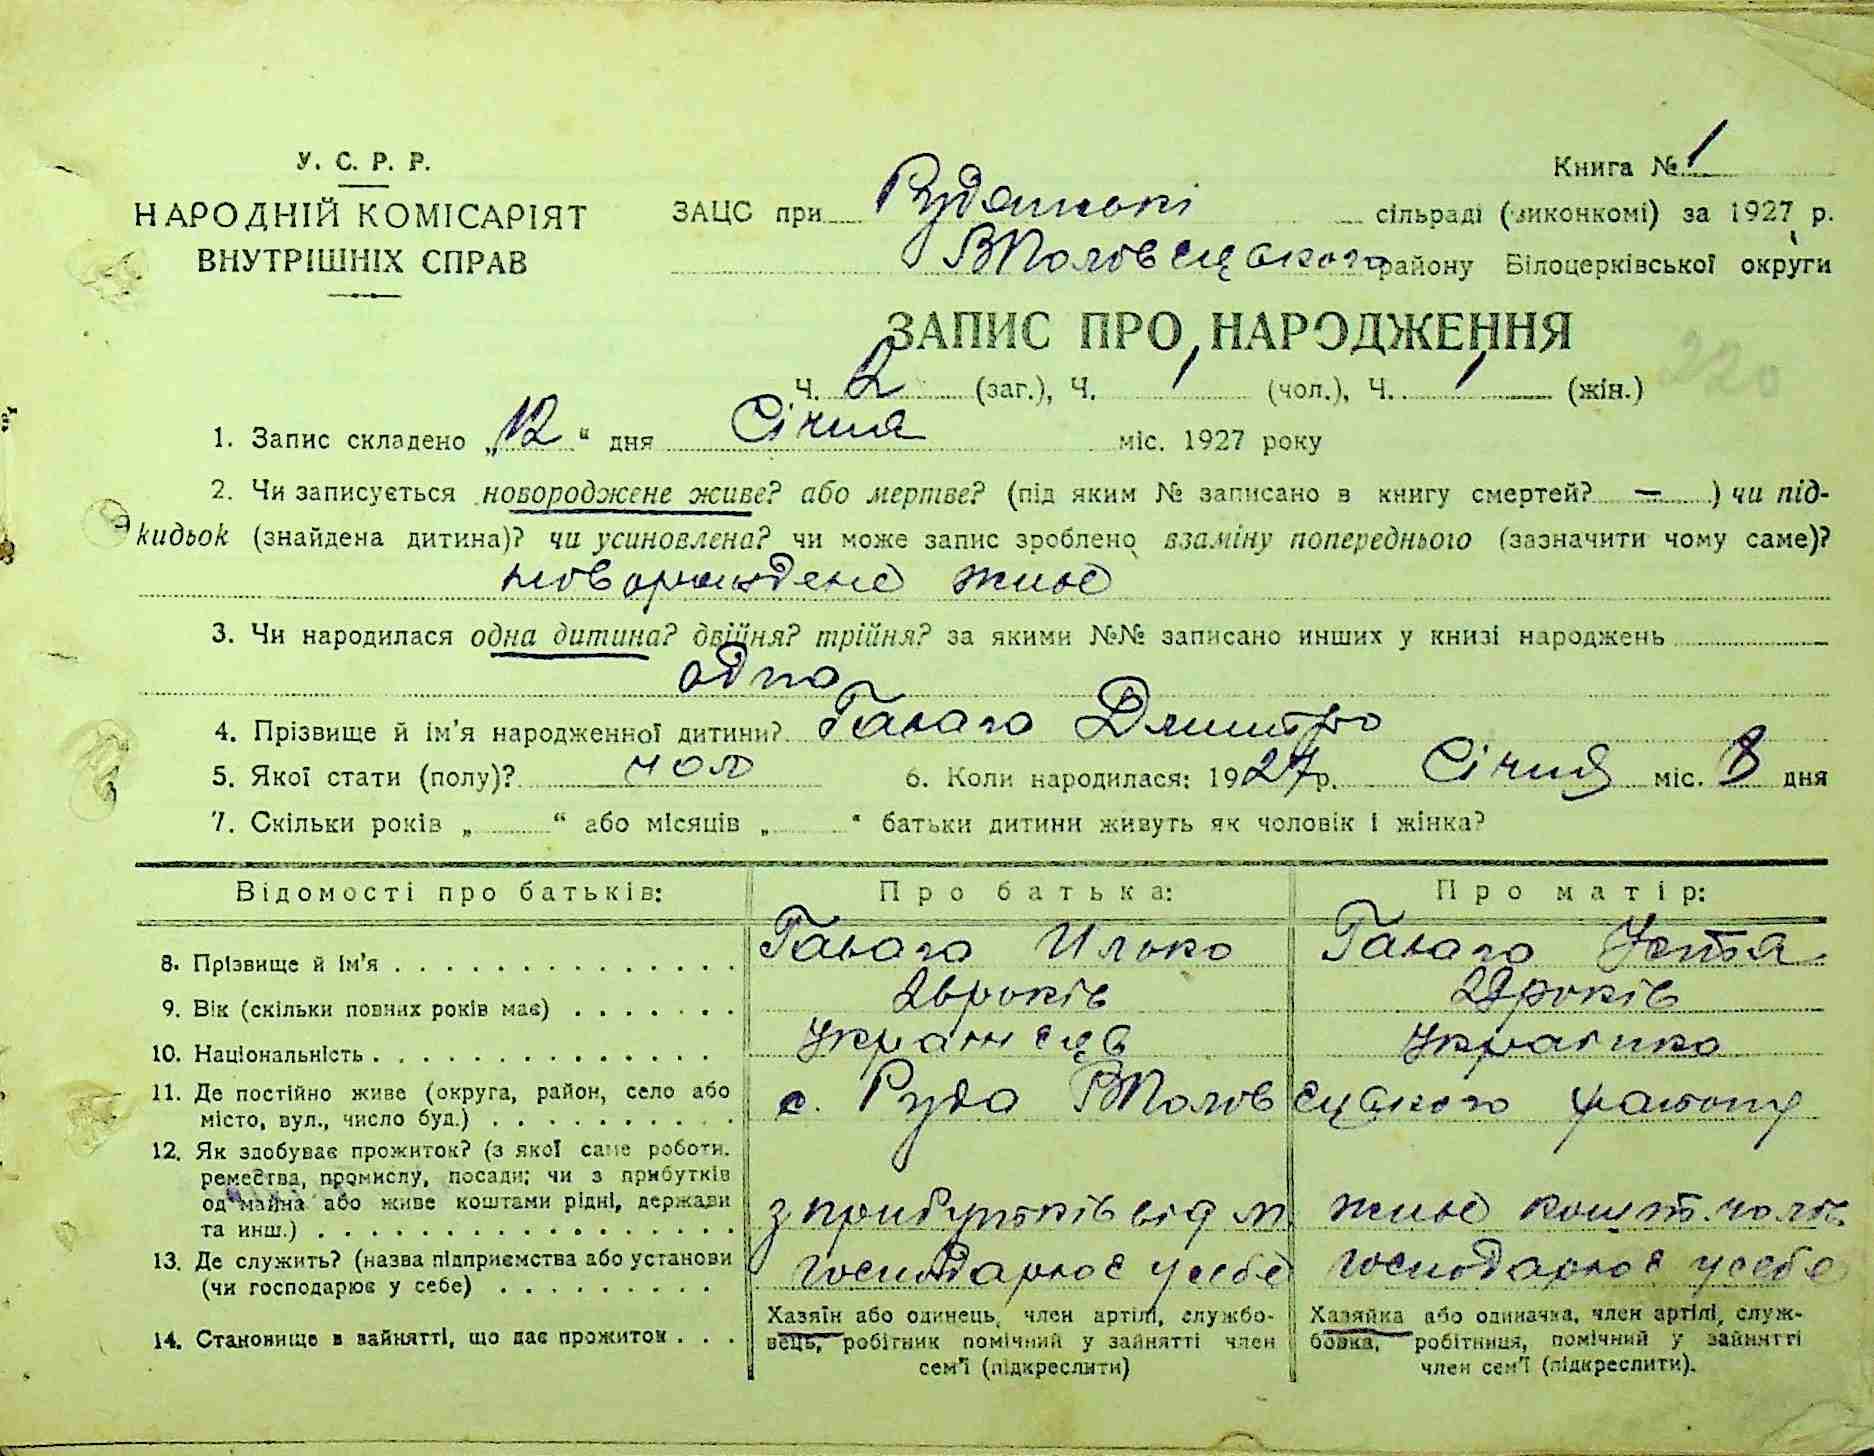 У. С. Р. Р.
НАРОДНІЙ КОМІСАРІЯТ
ВНУТРІШНІХ СПРАВ
Книга № 1
ЗАЦС при Рудянські сільраді (виконкомі) за 1927 р.
ВПоловецького району Білоцерківської округи
ЗАПИС ПРО НАРОДЖЕННЯ
220
Ч. 2 (заг.), Ч. 1 (чол.), Ч. 1 (жін.)
1. Запис складено „12“ дня Січня міс. 1927 року
2. Чи записується новороджене живе? або мертве? (під яким № записано в книгу смертей? — ) чи під-
кидьок (знайдена дитина)? чи усиновлена? чи може запис зроблено взаміну попереднього (зазначити чому саме)?
новорождене живе
3. Чи народилася одна дитина? двійня? трійня? за якими №№ записано инших у книзі народжень
одна
4. Прізвище й ім'я народженної дитини? Гаваго Дмитро
5. Якої стати (полу)? чол 6. Коли народилася: 1927 р. Січня міс. 8 дня
7. Скільки років „ “ або місяців „ “ батьки дитини живуть як чоловік і жінка?
Відомості про батьків: Про батька: Про матір:
8. Прізвище й ім'я Гаваго Илько Гаваго Устя
9. Вік (скільки повних років має) 26 років років
10. Національність Українець Українка
11. Де постійно живе (округа, район, село або
місто, вул., число буд.) с. Руда ВПоловецького району
12. Як здобуває прожиток? (з якої саме роботи,
ремества, промислу, посади; чи з прибутків
од майна або живе коштами рідні, держави
та инш.) з прибутків від м живе кошт. чолов
13. Де служить? (назва підприємства або установи
(чи господарює у себе) господарює у себе господарює у себе
14. Становище в зайнятті, що дає прожиток
Хазяїн або одинець, член артілі, службо-
вець, робітник помічний у зайнятті член
сем'ї (підкреслити)
Хазяйка або одиначка, член артілі, служ-
бовка, робітниця, помічний у зайнятті
член сем'ї (підкреслити).